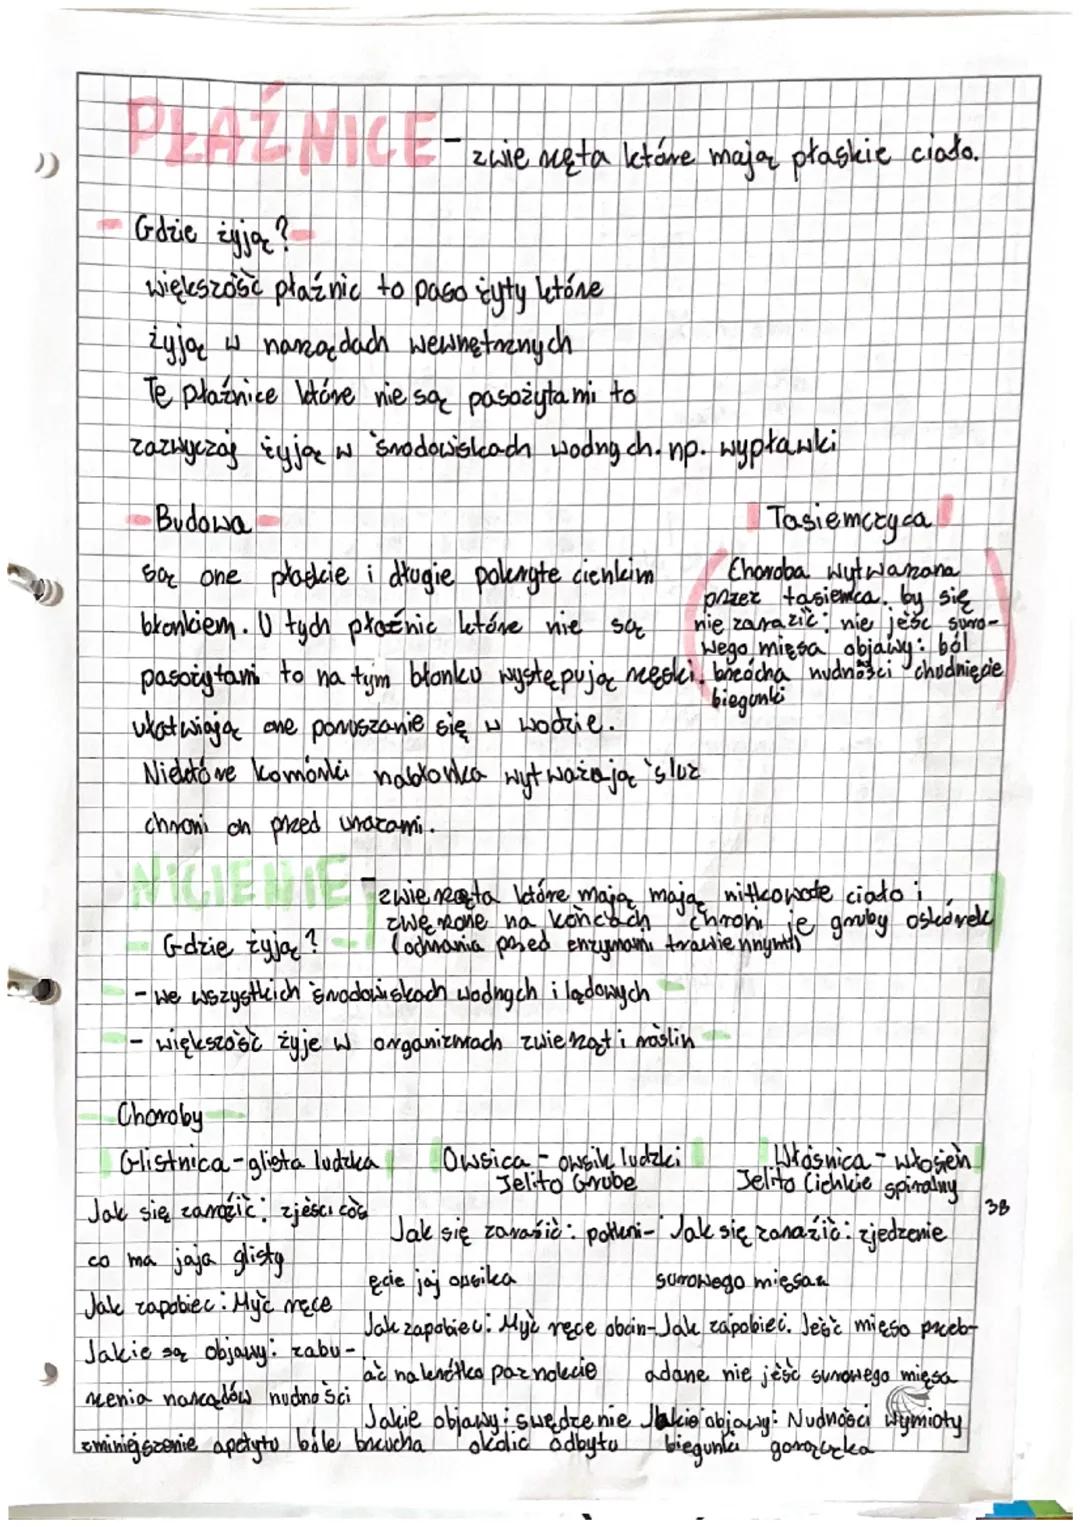 PŁAŹNICE - zwierzęta które mają płaskie ciało.
Gdzie żyją?
większość płaźnic to pasożyty które
żyją w narządach wewnętrznych
Te płaźnice które nie są pasożytami to
zazwyczaj żyją w środowiskach wodnych. np. wypławki
Budowa
są one płaskie i długie pokryte cienkim
błonkiem. U tych płaźnic które nie są
pasożytami to na tym błonku występują rzęski.
ułatwiają one poruszanie się w wodzie.
Niektóre komórki nabłonka wytważają śluz
chroni on przed urazami.
Tasiemczyca
Choroba wytwarzana
przez tasiemca. by się
nie zarazić: nie jeść suro-
wego mięsa objawy: ból
brzócha nudności chudnięcie
biegunki
NICIENIE - zwierzęta które mają mają nitkowate ciało i
zwężone na końcach chroni je gruby oskórek
(odrania przed enzymami trawiennymi)
Gdzie żyją?
- we wszystkich środowiskach wodnych i lądowych
- większość żyje w organizmach zwierząt i roślin
Choroby
Glistnica - glista ludzka
Jak się zarazić: zjeści coś
co ma jaja glisty
Jak zapobiec: Myć ręce
Jakie są objawy: zabu-
rzenia narządów nudności
zmniejszenie apetytu bóle brzucha
Owsica - owsik ludzki
Jelito Grube
Jak się zaraźić: połkni-
ęcie jaj owsika
Jak zapobiec: Myć ręce obcin-
ać na krótko paznokcie
Jakie objawy: swędzenie
okolic odbytu
Włośnica - włosień
Jelito Cienkie spiralny
Jak się zaraźić: zjedzenie
surowego mięsa
Jak zapobiec. Jeść mięso przeb-
adane nie jeść surowego mięsa
Jakie objawy: Nudności Wymioty
biegunki gorączka
38